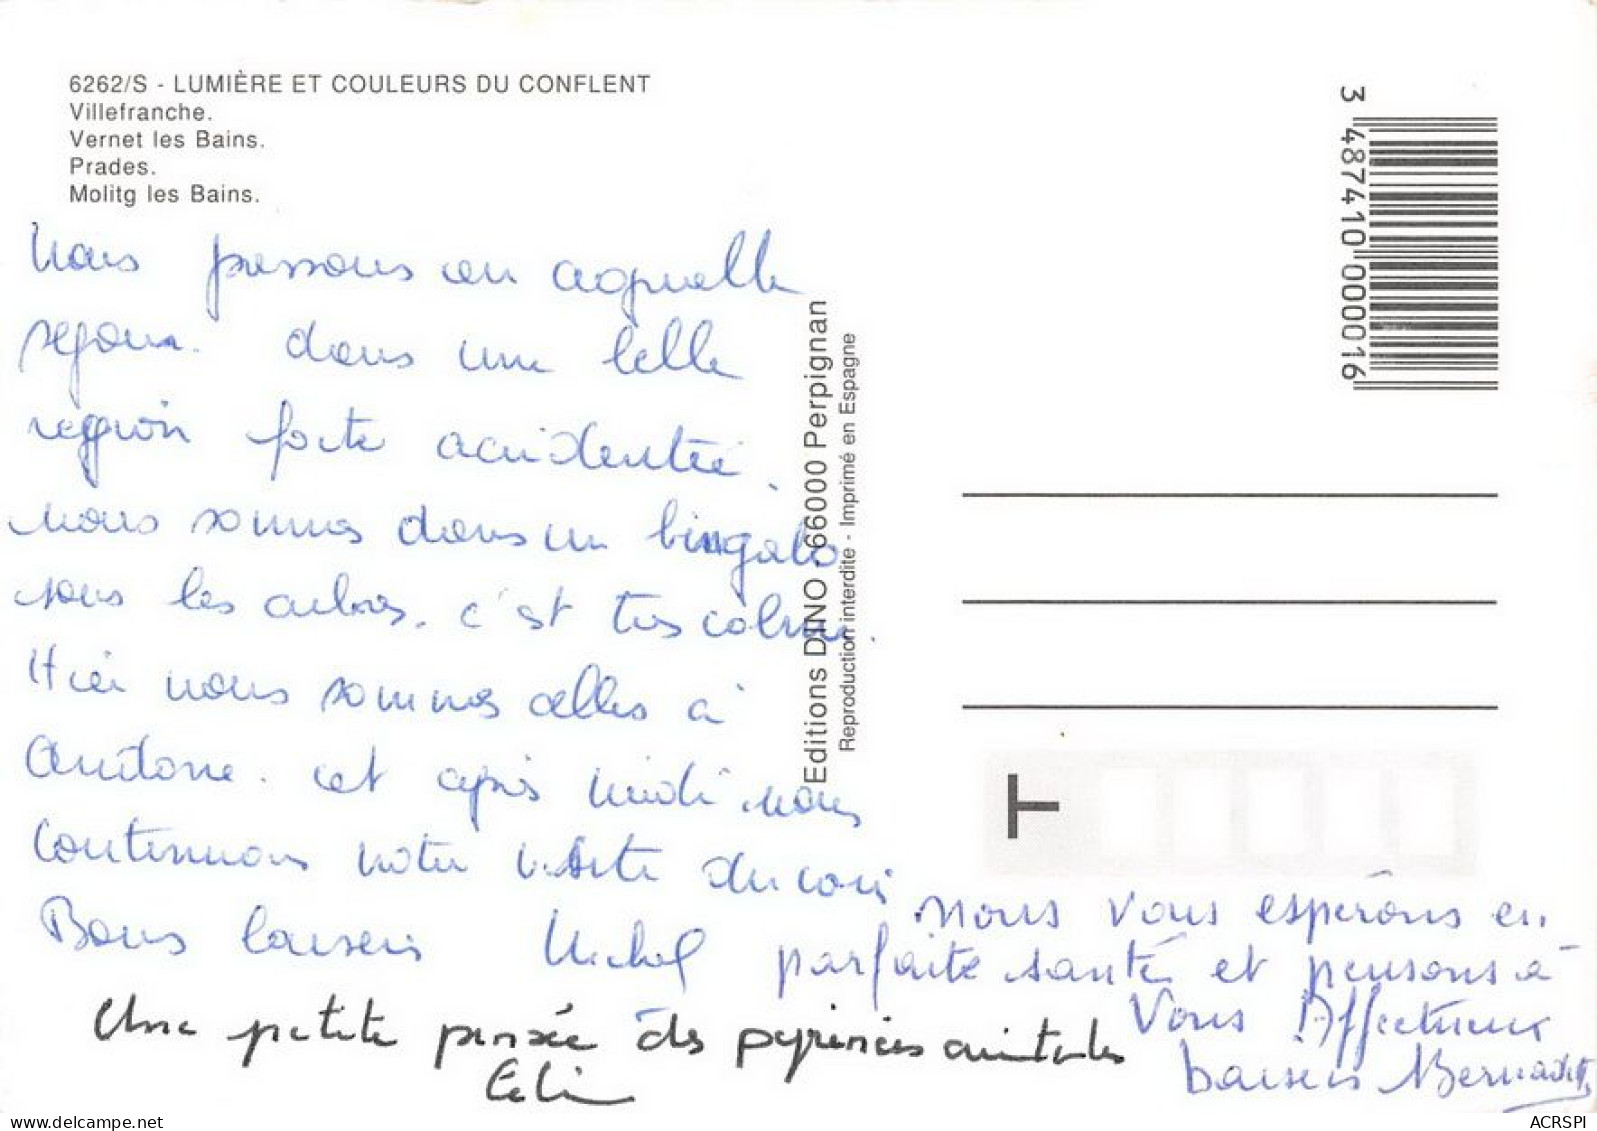 6262/S - LUMIÈRE ET COULEURS DU CONFLENT
Villefranche.
Vernet les Bains.
Prades.
Molitg les Bains.
Nous passons un agreable
sejour. dans une belle
region forte accidentée.
nous sommes dans un bingalo
sous les arbres. c'est tres calme.
Hier nous sommes alles à
Andorre. cet après midi nous
continuons notre visite du coin
Bons baisers Michel
Une petite pensée des pyrénées orientales
Celine
nous vous espérons en
parfaite santé et pensons à
Vous Affectueux
baisers Bernadette
Editions DINO 66000 Perpignan
Reproduction interdite - Imprimé en Espagne
3 487410 000016
T
ACRSPI